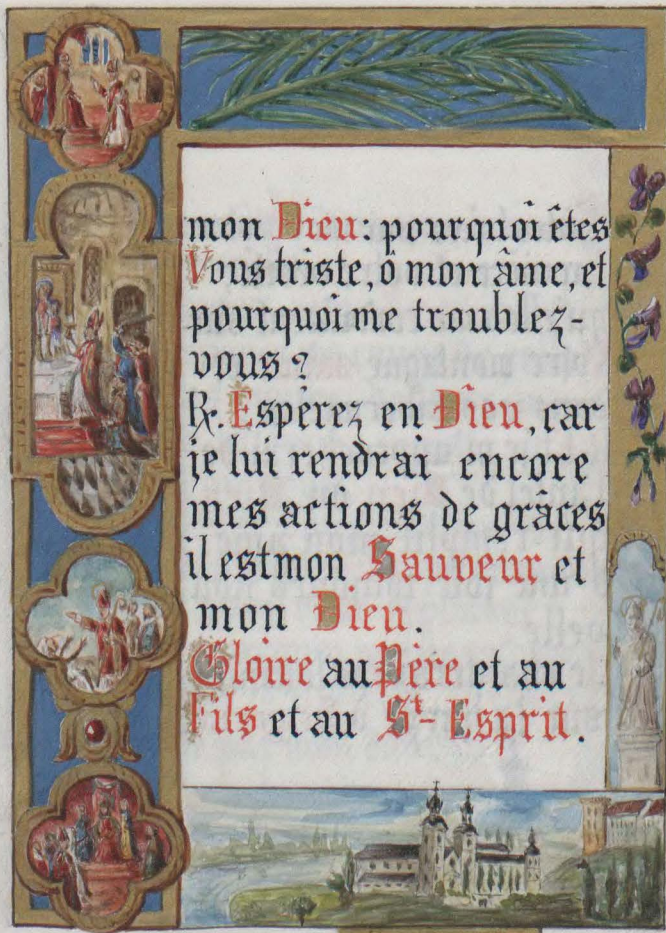 mon Dieu: pourquoi êtes
Vous triste, ô mon âme, et
pourquoi me troublez-
vous?
℟. Espérez en Dieu, car
je lui rendrai encore
mes actions de grâces
il est mon Sauveur et
mon Dieu.
Gloire au Père et au
Fils et au St-Esprit.